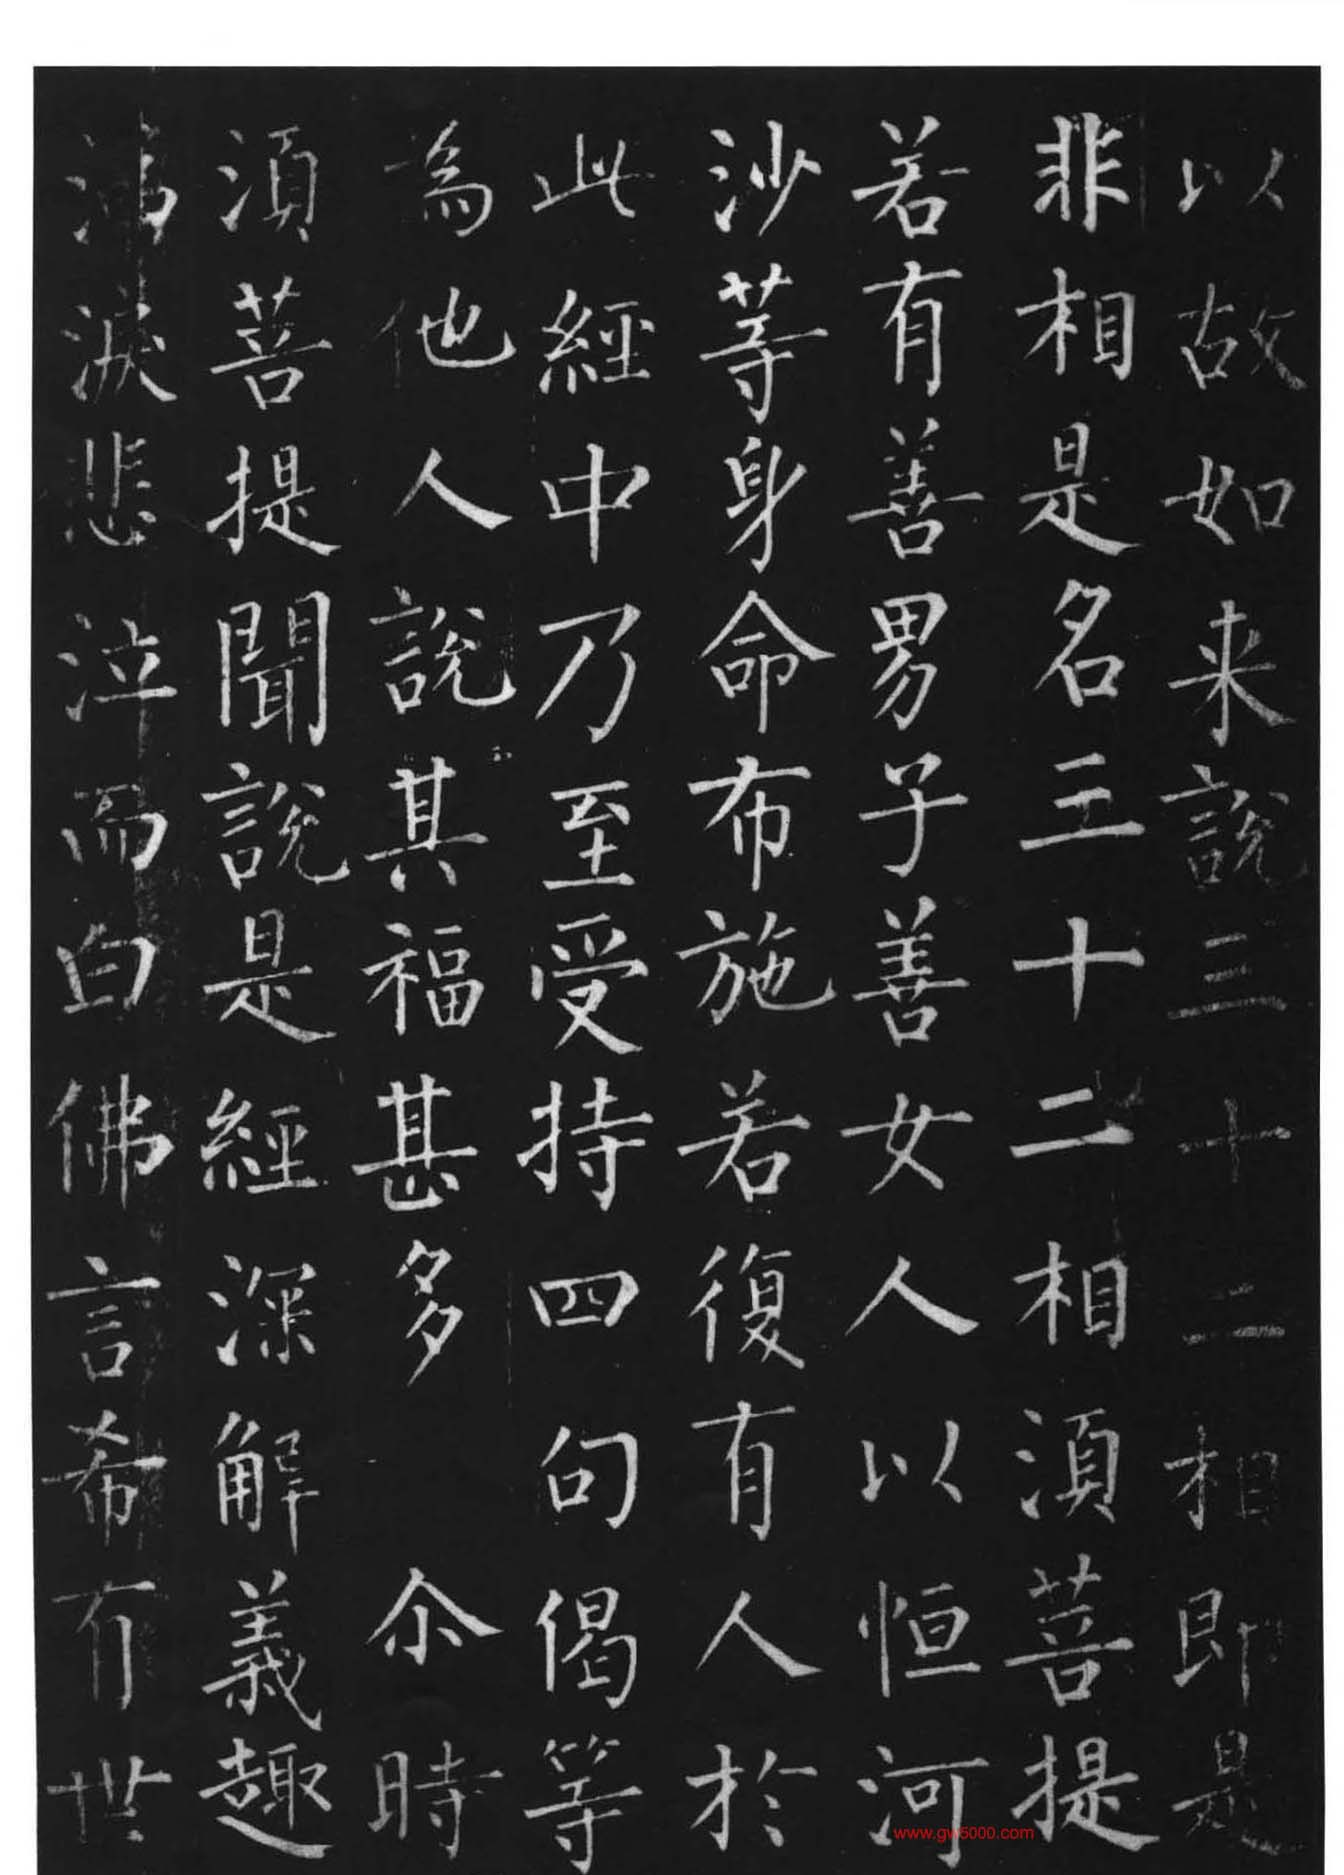 以故如来說三十二相即是
非相是名三十二相須菩提
若有善男子善女人以恒河
沙等身命布施若復有人於
此經中乃至受持四句偈等
為他人說其福甚多 尒時
須菩提聞說是經深解義趣
涕淚悲泣而白佛言希有世
www.gw5000.com